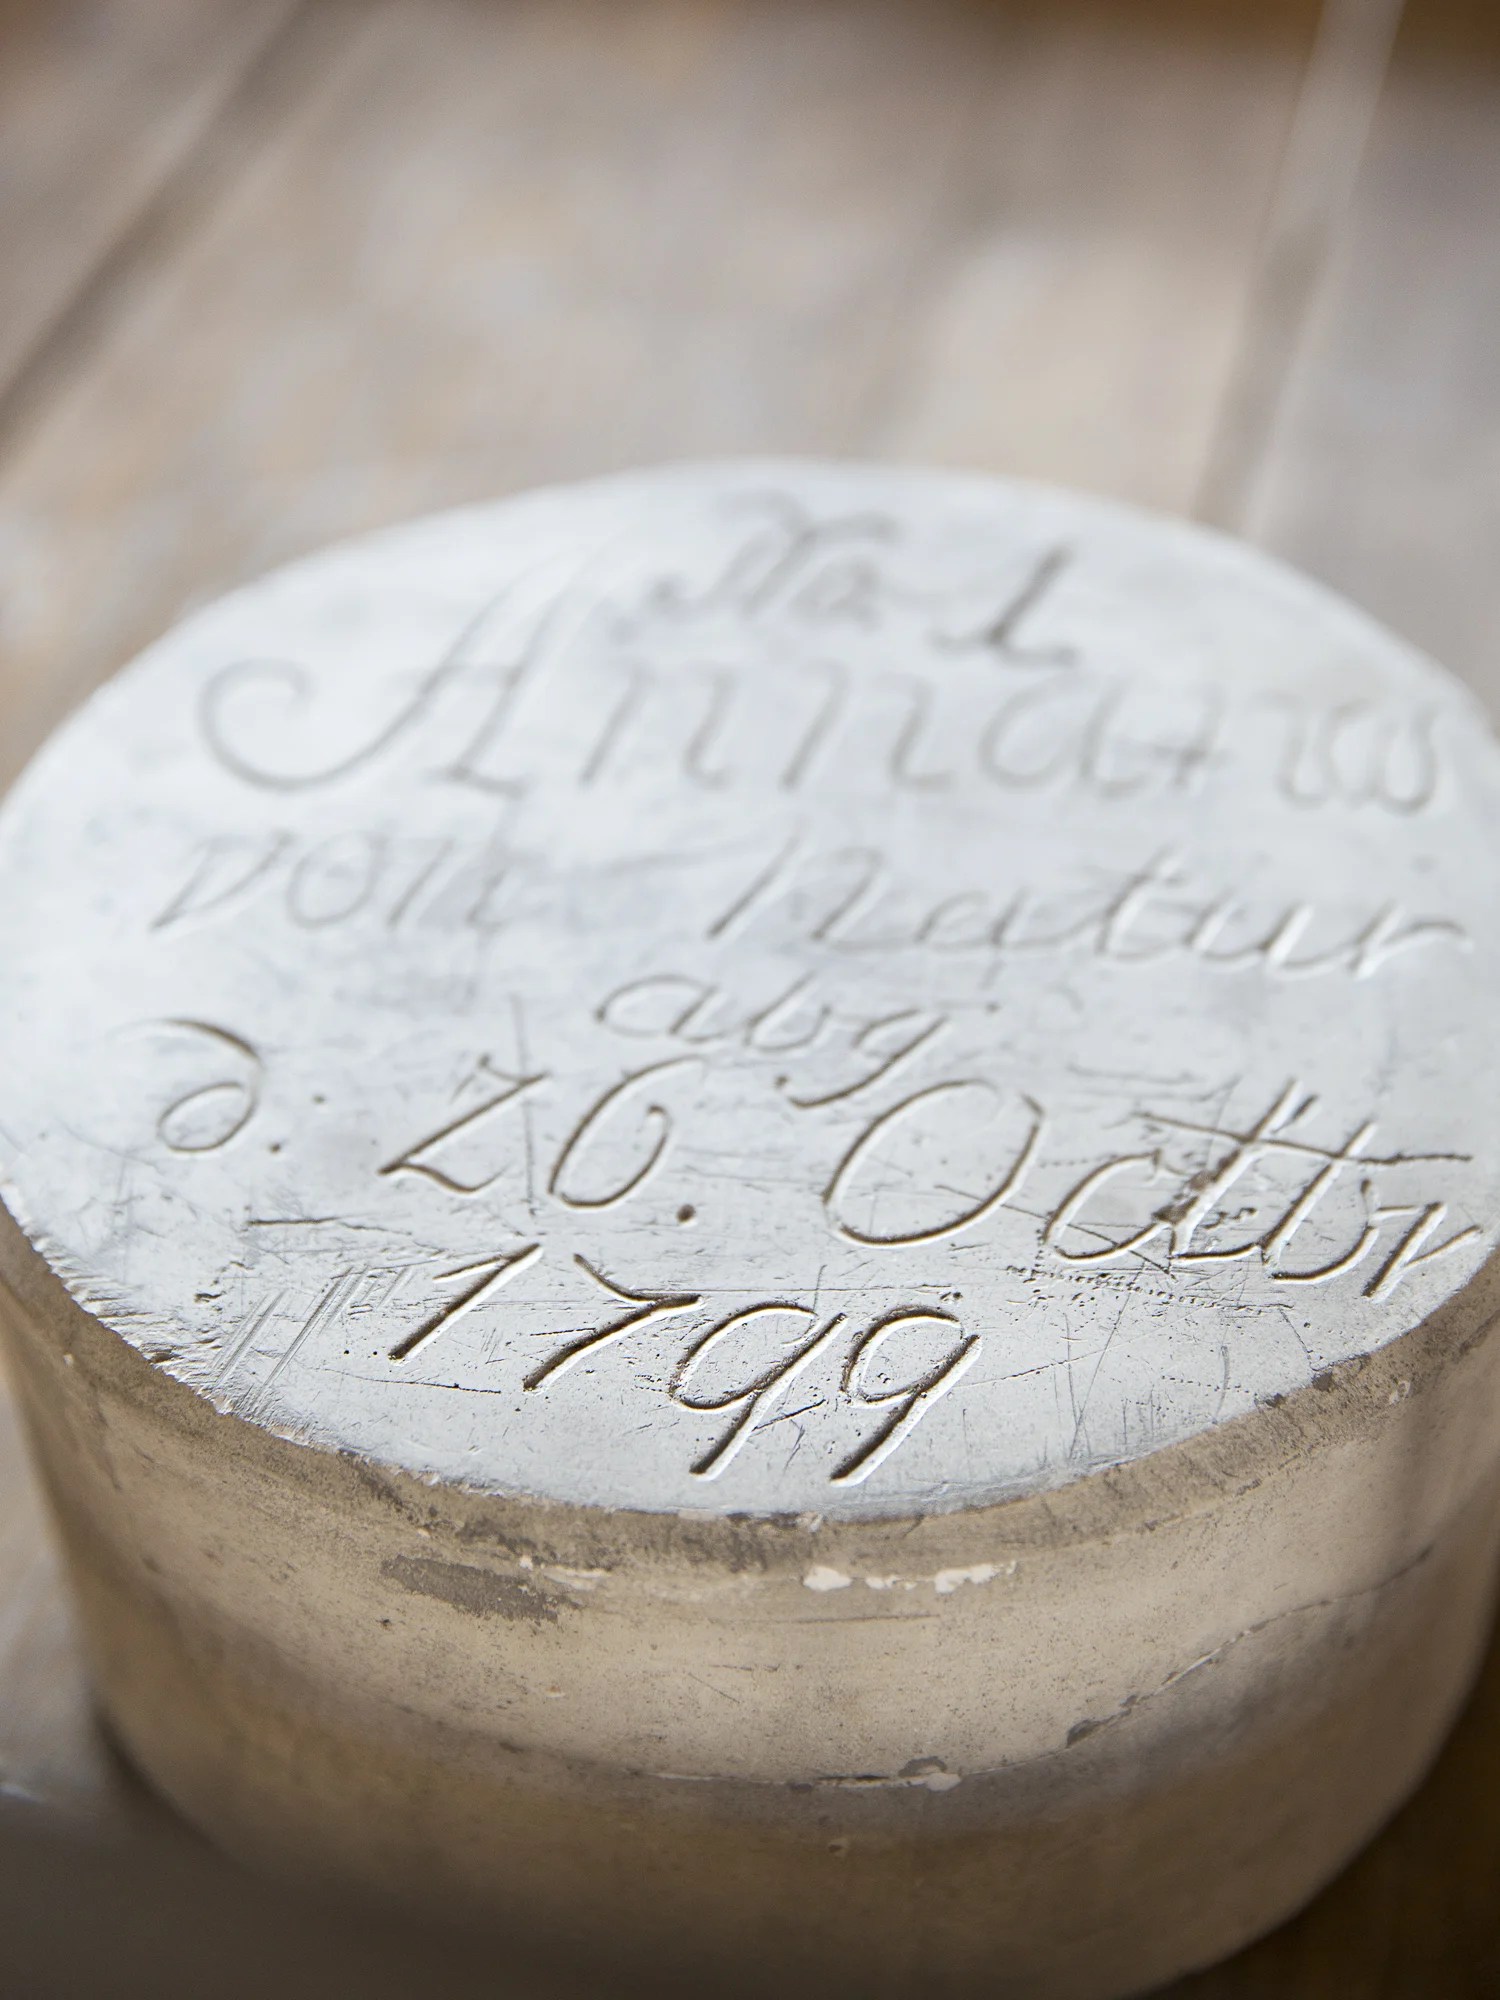 No 1
Annanas
von Natur
abg
d: 26. Octbr
1799